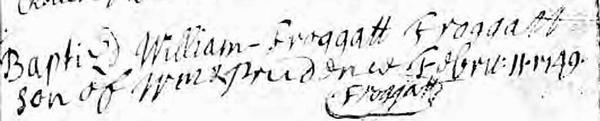 Baptizd William Froggatt Froggatt
son of Wm & Prudence Febru: 11: 1749
Froggatt